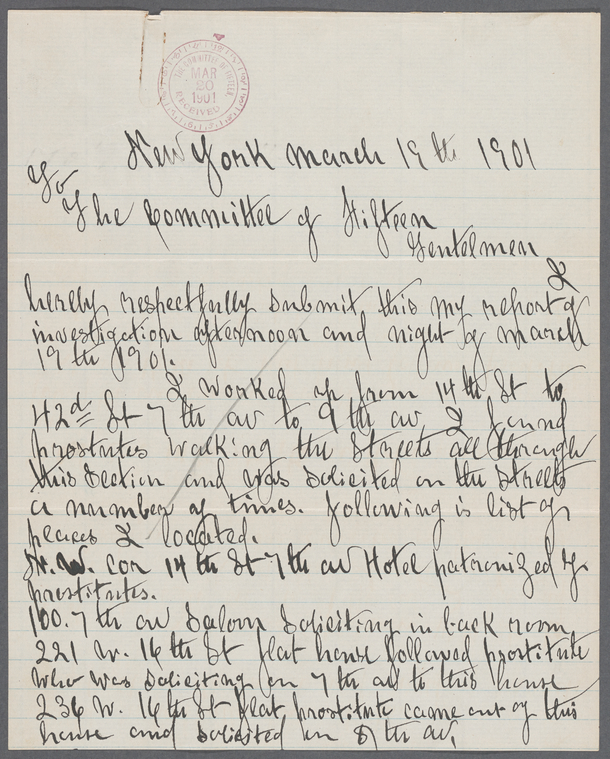 THE COMMITTEE OF FIFTEEN
MAR
20
1901
RECEIVED
New York March 19th 1901
To
The Committee of Fifteen
Gentelmen
I
hereby respectfully submit this my report of
investigation afternoon and night of March
19th 1901.
I worked up from 14th St to
42d St 7th av to 9th av, I found
prostitutes walking the streets all through
this section and was solicited on the streets
a number of times. Following is list of
places I located.
N.W. cor 14th St 7th av Hotel patronized by
prostitutes.
100.7th av Saloon soliciting in back room
221 W. 16th St flat house followed prostitute
who was soliciting on 7th av to this house
236 W. 16th St flat prostitute came out of this
house and solicited on 8th av.